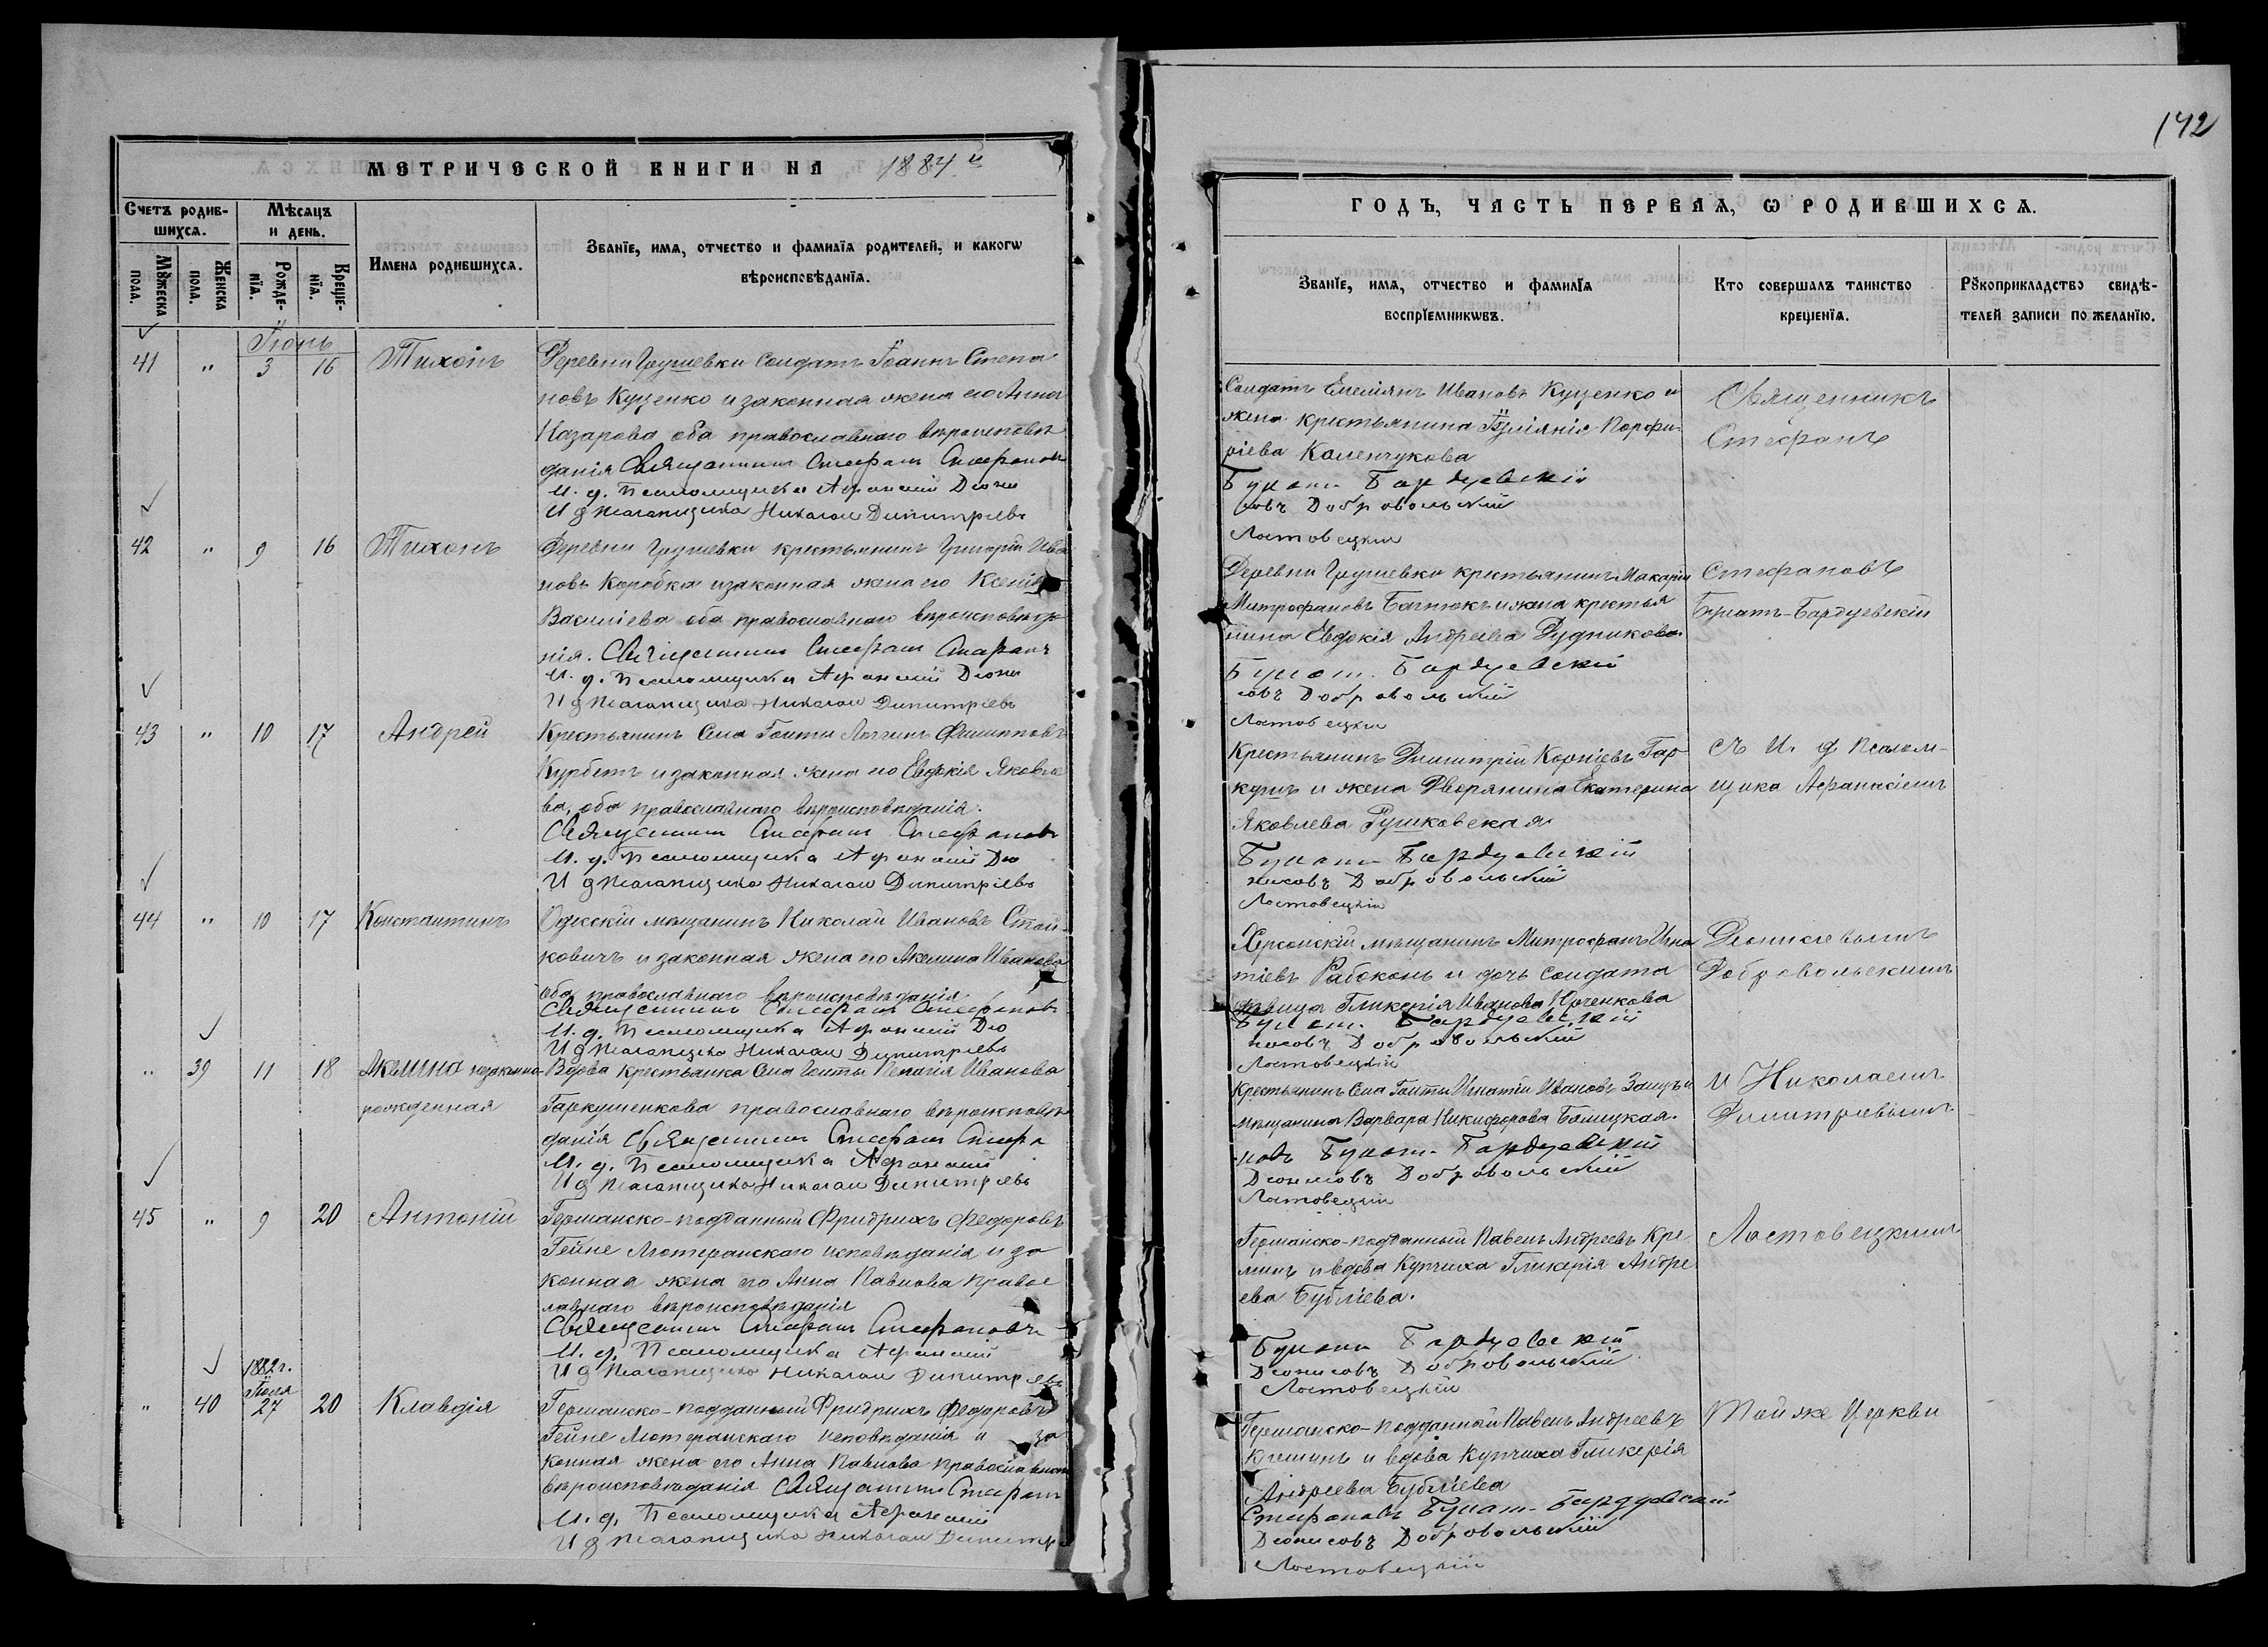 МЕТРИЧЕСКОЙ КНИГИ НА 1884й
Счетъ родив-
шихся.
Мѣсяцъ
и день.
Мужеска
пола.
Женска
пола.
Рожде-
нїя.
Креще-
нїя.
Имена родившихся.
Званїе, имя, отчество и фамилїя родителей, и какогѡ
вѣроисповѣданїя.
Іюнь
41 " 3 16 Тихонъ
Деревни Грушевки солдатъ Іоаннъ Степа
новъ Куценко и законная жена его Анна
Назарова оба православнаго вѣроисповѣ
данія Священникъ Стефанъ Стефанов
И. д. Псаломщика Афанасій Діони
И д Псаломщика Николай Димитріевъ
42 " 9 16 Тихонъ
Деревни Грушевки крестьянинъ Григорій Ива
новъ Коробка и законная жена его Ксенія
Василіева оба православнаго вѣроисповѣда
нія. Священникъ Стефанъ Стефан
И. д. Псаломщика Афанасій Діони
И д Псаломщика Николай Димитріевъ
43 " 10 17 Андрей
Крестьянинъ Села Гоиты Логгинъ Филипповъ
Курбетъ и законная жена его Евдокія Яковле
ва, оба православнаго вѣроисповѣданія.
Священникъ Стефанъ Стефанов
И. д. Псаломщика Афанасій Діо
И д Псаломщика Николай Димитріевъ
44 " 10 17 Константинъ
Одесскій мѣщанинъ Николай Ивановъ Стой-
ковичъ и законная жена его Акелина Иванова
оба православнаго вѣроисповѣданія
Священникъ Стефанъ Стефанов
И. д. Псаломщика Афанасій Діо
И д Псаломщика Николай Димитріевъ
" 39 11 18 Акелина незаконно-
рожденная
Вдова крестьянка Села Гоиты Пелагія Иванова
Гаркушенкова православнаго вѣроисповѣ
данія Священникъ Стефанъ Стефа
И. д. Псаломщика Афанасій
И д Псаломщика Николай Димитріевъ
45 " 9 20 Антоній
Германско-подданный Фридрихъ Федоровъ
Гейне Лютеранскаго исповѣданія и за
конная жена его Анна Павлова правос
лавнаго вѣроисповѣданія
Священникъ Стефанъ Стефановъ
И. д. Псаломщика Афанасій
И д Псаломщика Николай Димитріевъ
1882 г.
" 40 27 20 Клавдія
Германско-подданный Фридрихъ Федоровъ
Гейне Лютеранскаго исповѣданія и за
конная жена его Анна Павлова православнаго
вѣроисповѣданія Священникъ Стефанъ
И. д. Псаломщика Афанасій
И д Псаломщика Николай Димитр
142
ГОДЪ, ЧАСТЬ ПЕРВАЯ, Ѡ РОДИВШИХСЯ.
Званїе, имя, отчество и фамилїя
воспрїемникѡвъ.
Кто совершалъ таинство
крещенїя.
Рукоприкладство свидѣ-
телей записи по желанїю.
Солдатъ Емеліянъ Ивановъ Куценко и
жена крестьянина Іуліянія Порфи-
ріева Каленчукова
Булат- Бардуевскій
совъ Добровольскій
Ластовецкій
Деревни Грушевки крестьянинъ Макарій
Митрофановъ и жена крестья
нина Евдокія Андреева Рудникова
Булат- Бардуевскій
совъ Добровольскій
Ластовецкій
Крестьянинъ Димитрій Корніевъ Гар
кушъ и жена Дворянина Екатерина
Яковлева Рушковская
Булат- Бардуевскій
нисовъ Добровольскій
Ластовецкій
Херсонскій мѣщанинъ Митрофанъ Игна
тіевъ Рабоконь и дочь солдата
дѣвица Гликерія Иванова Юрченкова
Булат- Бардуевскій
нисовъ Добровольскій
Ластовецкій
Крестьянинъ Села Гоиты Игнатій Ивановъ и
мѣщанина Варвара Никифорова
новъ Булат- Бардуевскій
Діонисовъ Добровольскій
Ластовецкій
Германско-подданный Павелъ Андреевъ Кре
минъ и вдова Купчиха Гликерія Андре
ева Бубліева.
Булат- Бардуевскій
Діонисовъ Добровольскій
Ластовецкій
Германско-подданный Павелъ Андреевъ
Кременъ и вдова Купчиха Гликерія
Андреева Бубліева
Стефановъ Булат-Бардуевскій
Діонисовъ Добровольскій
Ластовецкій
Священникъ
Стефанъ
Стефановъ
Булатъ-Бардуевскій
съ И. д Псалом-
щика Афанасіемъ
Діонисіевымъ
Добровольскимъ
и Николаемъ
Димитріевымъ
Ластовецкимъ
Той же Церкви